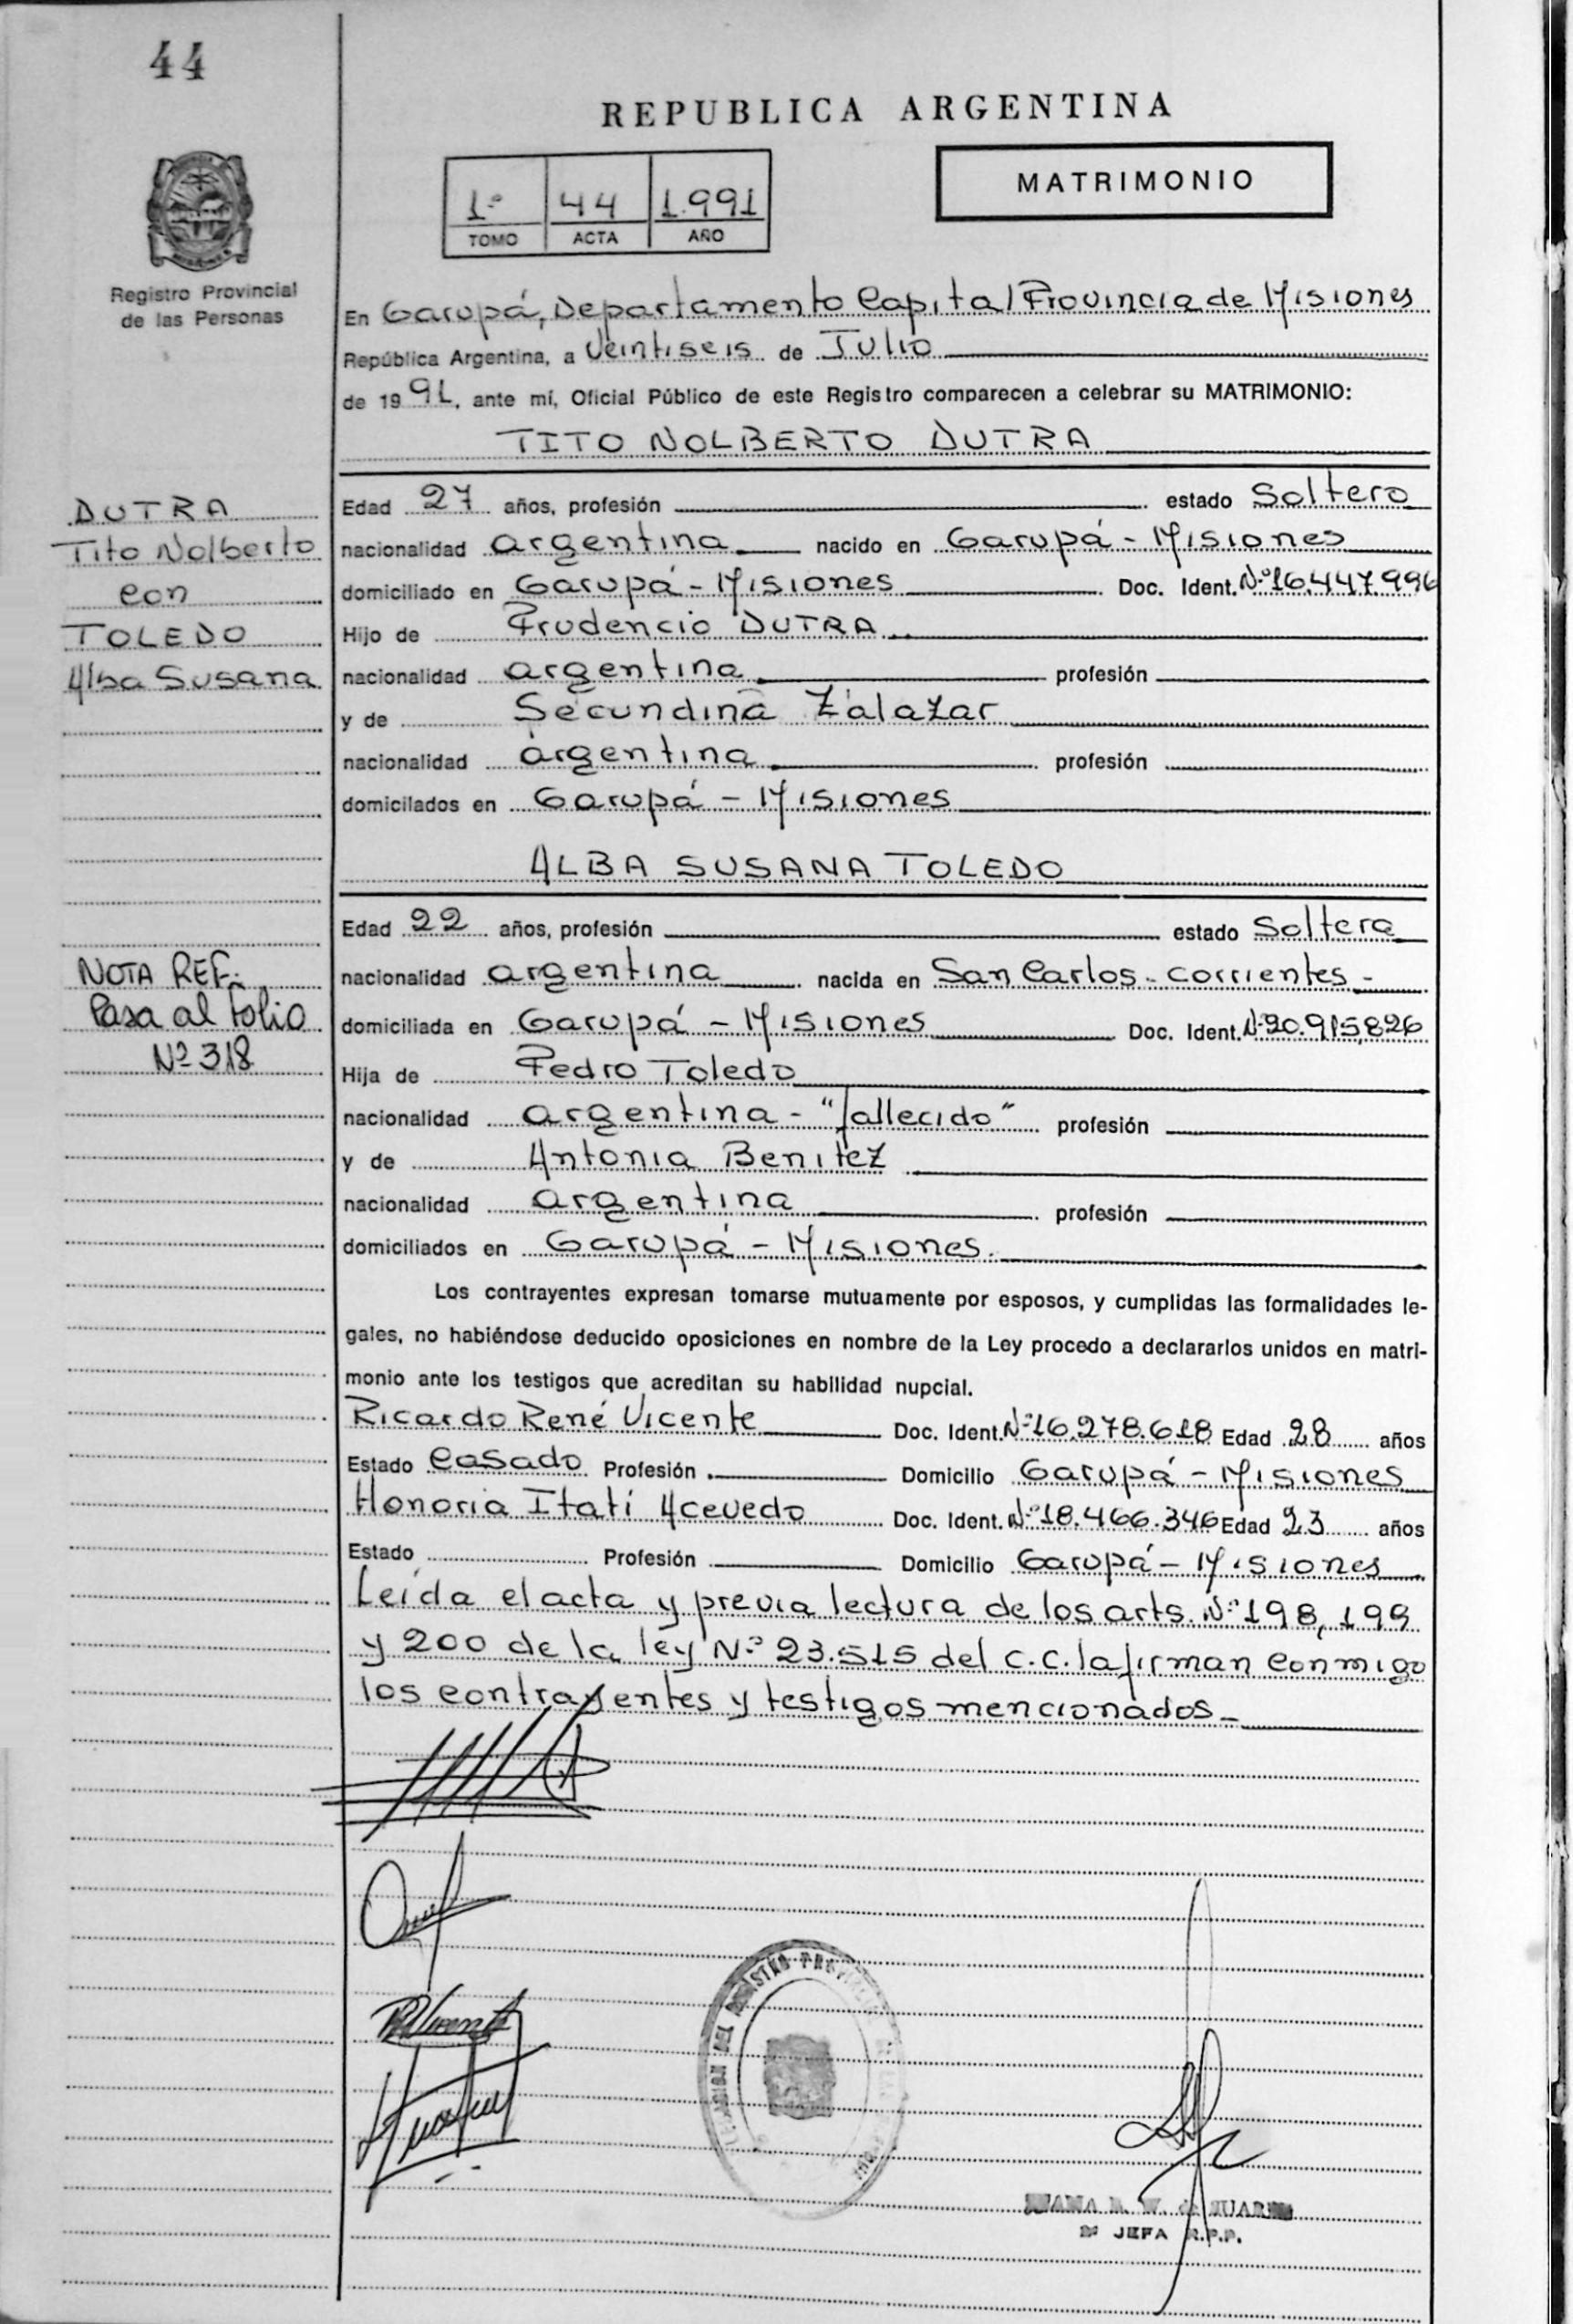 44
REPUBLICA ARGENTINA
MATRIMONIO
1º 44 1.991
TOMO ACTA AÑO
Registro Provincial
de las Personas
En Garupá, Departamento Capital Provincia de Misiones
República Argentina, a Veintiseis de Julio
de 1991, ante mí, Oficial Público de este Registro comparecen a celebrar su MATRIMONIO:
TITO NOLBERTO DUTRA
DUTRA
Tito Nolberto
con
TOLEDO
Alba Susana
Edad 27 años, profesión estado Soltero
nacionalidad argentina nacido en Garupá - Misiones
domiciliado en Garupá - Misiones Doc. Ident. Nº 16.447.996
Hijo de Prudencio DUTRA
nacionalidad argentina profesión
y de Secundina Zalazar
nacionalidad argentina profesión
domicilados en Garupá - Misiones
ALBA SUSANA TOLEDO
Edad 22 años, profesión estado Soltera
nacionalidad argentina nacida en San Carlos - Corrientes -
domiciliada en Garupá - Misiones Doc. Ident. Nº 20.915.826
Hija de Pedro Toledo
nacionalidad argentina - "fallecido" profesión
y de Antonia Benitez
nacionalidad argentina profesión
domiciliados en Garupá - Misiones.
NOTA REF.:
Pasa al folio
Nº 318
Los contrayentes expresan tomarse mutuamente por esposos, y cumplidas las formalidades le-
gales, no habiéndose deducido oposiciones en nombre de la Ley procedo a declararlos unidos en matri-
monio ante los testigos que acreditan su habilidad nupcial.
Ricardo René Vicente Doc. Ident. Nº 16.278.618 Edad 28 años
Estado Casado Profesión Domicilio Garupá - Misiones
Honoria Itatí Acevedo Doc. Ident. Nº 18.466.346 Edad 23 años
Estado Profesión Domicilio Garupá - Misiones
Leída el acta y previa lectura de los arts. Nº 198, 199
y 200 de la ley Nº 23.515 del C.C. la firman conmigo
los contrayentes y testigos mencionados -
JEFA R.P.P.